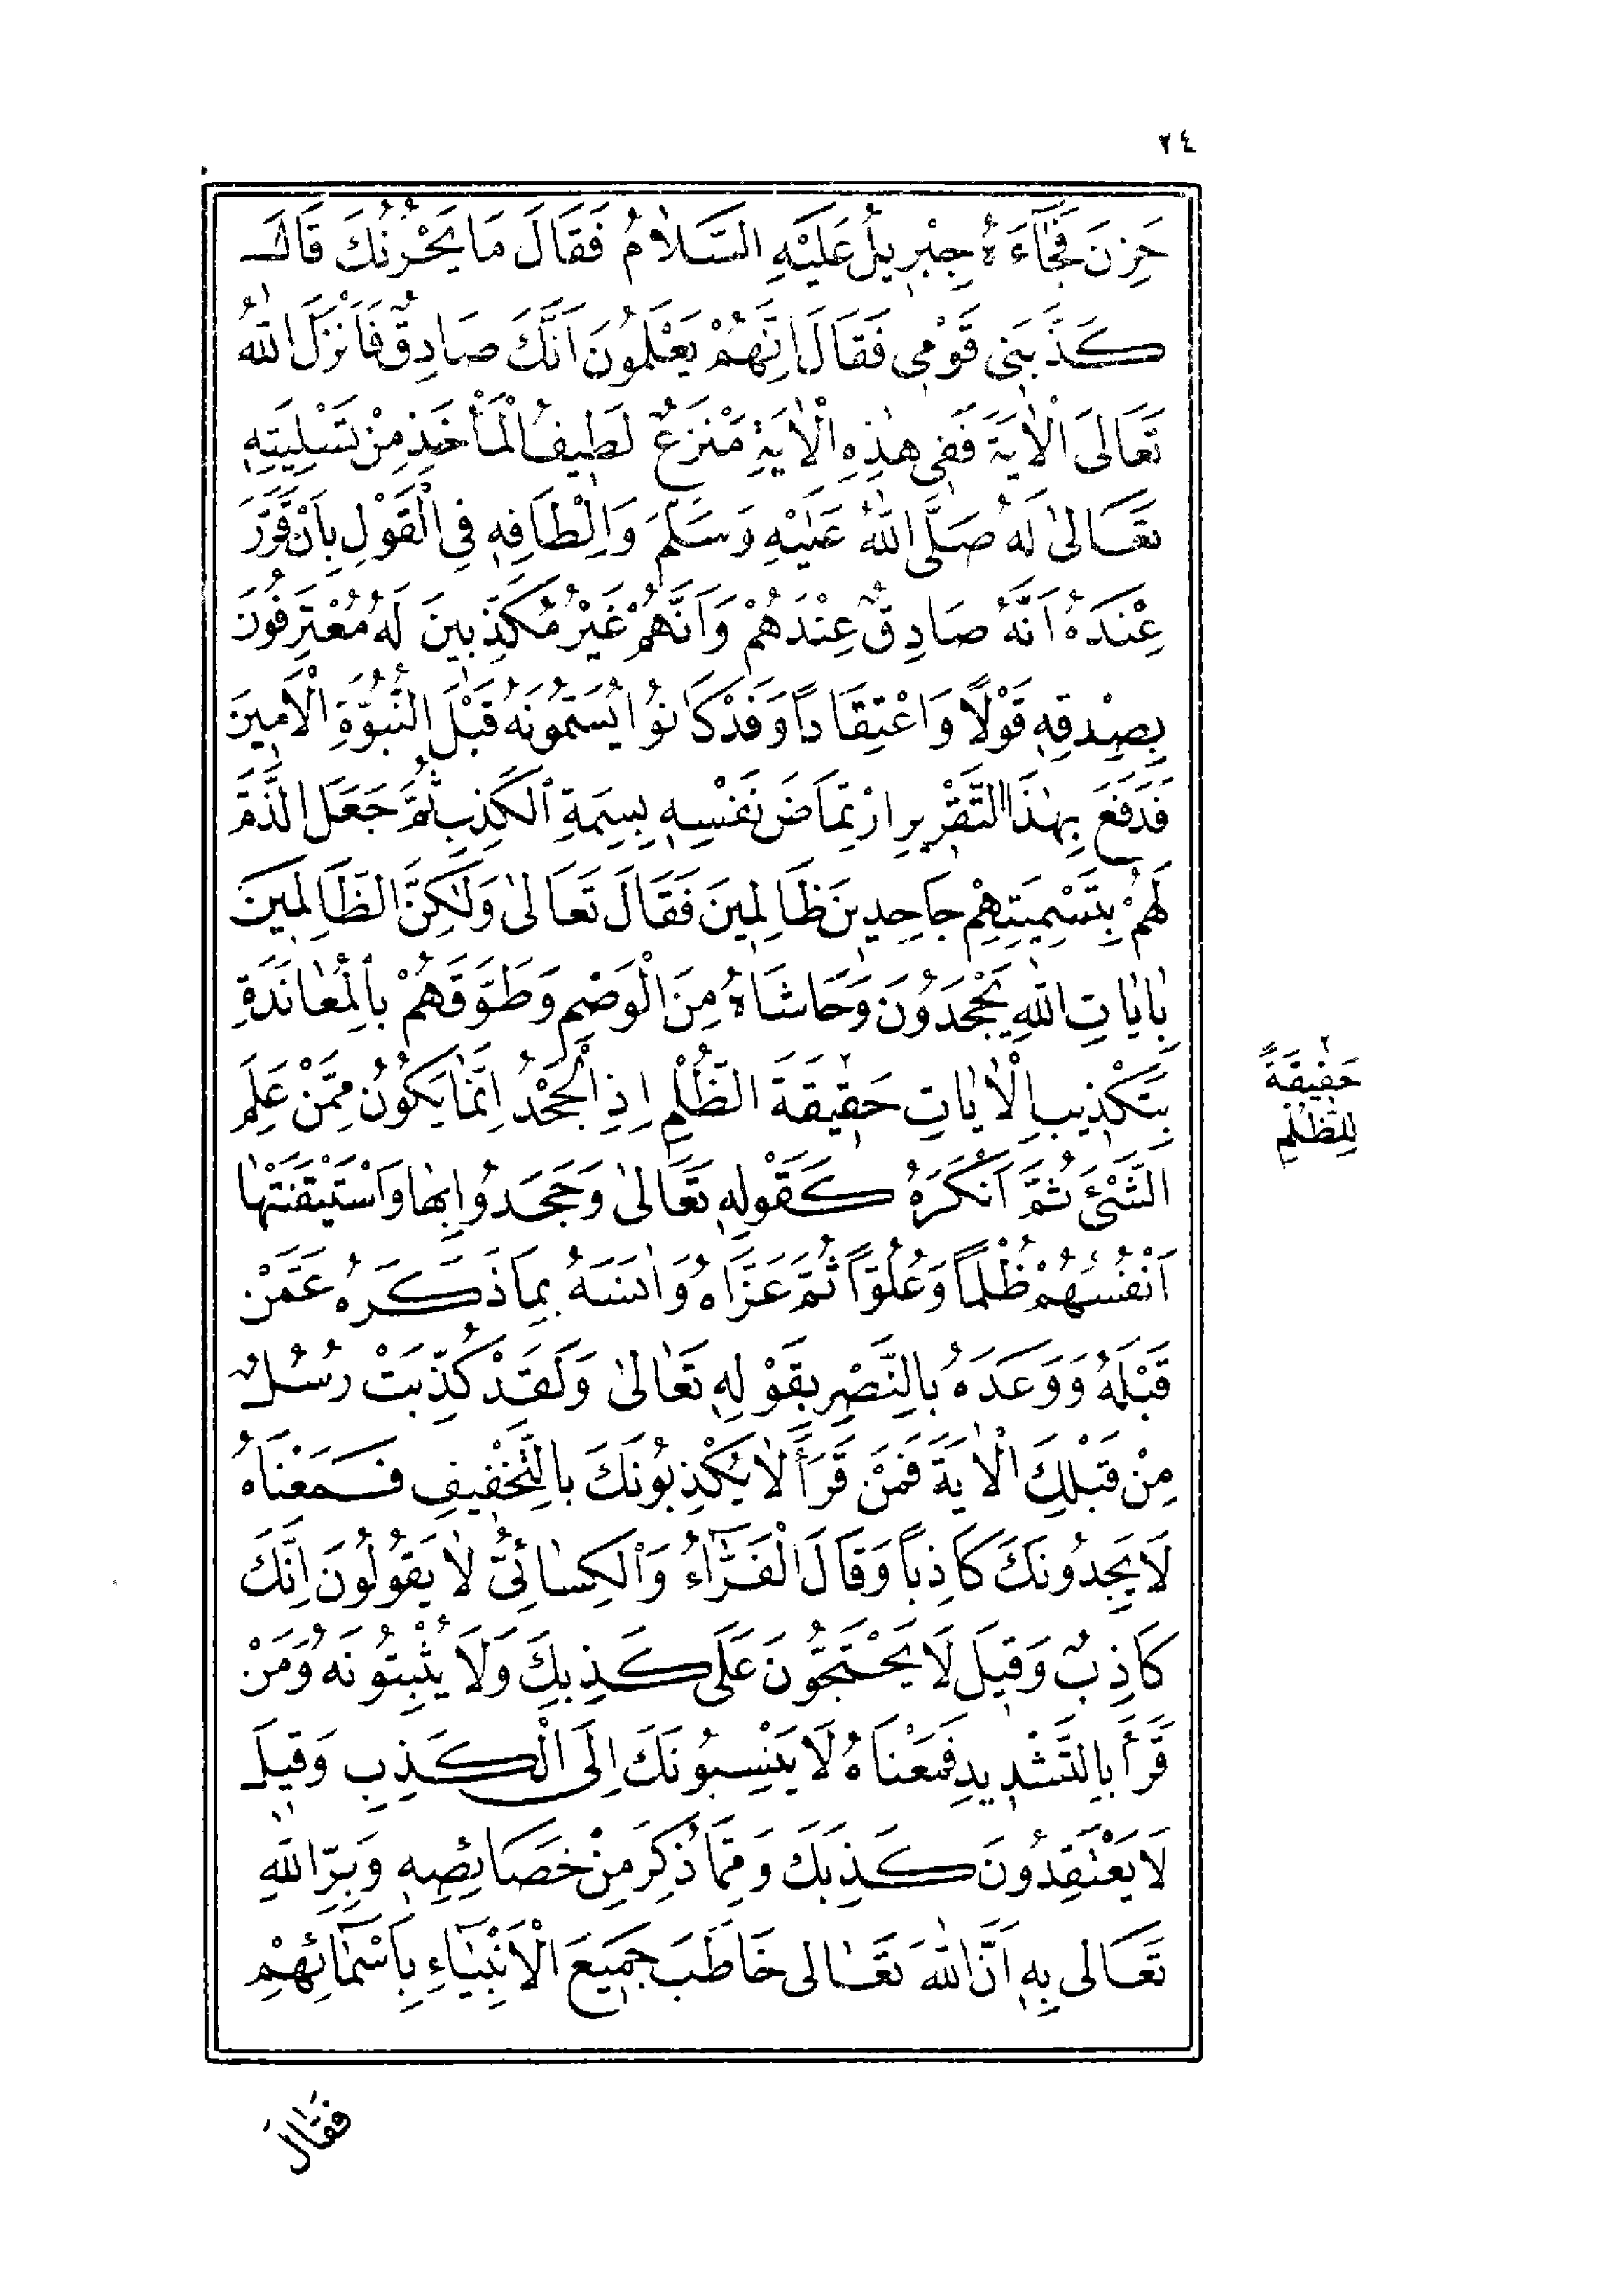 ٢٤
حَزِنَ فَجَاءَهُ جِبْرِيلُ عَلَيْهِ السَّلَامُ فَقَالَ مَا يَحْزُنُكَ قَالَ
كَذَّبَنِي قَوْمِي فَقَالَ اِنَّهُمْ يَعْلَمُونَ اَنَّكَ صَادِقٌ فَاَنْزَلَ اللهُ
تَعَالَى الْاٰيَةَ فَفِي هٰذِهِ الْاٰيَةِ مَنْزَعٌ لَطِيفُ الْمَأْخَذِ مِنْ تَسْلِيَتِهِ
تَعَالىٰ لَهُ صَلَّى اللهُ عَلَيْهِ وَسَلَّمَ وَاِلْطَافِهِ فِي الْقَوْلِ بِاَنْ قَرَّرَ
عِنْدَهُ اَنَّهُ صَادِقٌ عِنْدَهُمْ وَاَنَّهُمْ غَيْرُ مُكَذِّبِينَ لَهُ مُعْتَرِفُونَ
بِصِدْقِهِ قَوْلًا وَاعْتِقَادًا وَقَدْ كَانُوا يُسَمُّونَهُ قَبْلَ النُّبُوَّةِ الْاَمِينَ
فَدَفَعَ بِهٰذَا التَّقْرِيرِ ارْتِمَاضَ نَفْسِهِ بِسِمَةِ الْكَذِبِ ثُمَّ جَعَلَ الذَّمَّ
لَهُمْ بِتَسْمِيَتِهِمْ جَاحِدِينَ ظَالِمِينَ فَقَالَ تَعَالىٰ وَلٰكِنَّ الظَّالِمِينَ
بِاٰيَاتِ اللهِ يَجْحَدُونَ وَحَاشَاهُ مِنَ الْوَصْمِ وَطَوَّقَهُمْ بِالْمُعَانَدَةِ
بِتَكْذِيبِ الْاٰيَاتِ حَقِيقَةَ ٢ الظُّلْمِ اِذِ الْجَحْدُ اِنَّمَا يَكُونُ مِمَّنْ عَلِمَ
٢ حَقِيقَةً
لِلظُّلْمِ
الشَّيْئَ ثُمَّ اَنْكَرَهُ كَقَوْلِهِ تَعَالىٰ وَجَحَدُوا بِهَا وَاسْتَيْقَنَتْهَا
اَنْفُسُهُمْ ظُلْمًا وَعُلُوًّا ثُمَّ عَزَّاهُ وَاٰنَسَهُ بِمَا ذَكَرَهُ عَمَّنْ
قَبْلَهُ وَوَعَدَهُ بِالنَّصْرِ بِقَوْلِهِ تَعَالىٰ وَلَقَدْ كُذِّبَتْ رُسُلٌ
مِنْ قَبْلِكَ الْاٰيَةَ فَمَنْ قَرَأَ لَا يُكْذِبُونَكَ بِالتَّخْفِيفِ فَمَعْنَاهُ
لَا يَجِدُونَكَ كَاذِبًا وَقَالَ الْفَرَّاءُ وَالْكِسَائِيُّ لَا يَقُولُونَ اِنَّكَ
كَاذِبٌ وَقِيلَ لَا يَحْتَجُّونَ عَلَى كَذِبِكَ وَلَا يُثْبِتُونَهُ وَمَنْ
قَرَأَ بِالتَّشْدِيدِ فَمَعْنَاهُ لَا يَنْسِبُونَكَ اِلَى الْكَذِبِ وَقِيلَ
لَا يَعْتَقِدُونَ كَذِبَكَ وَمِمَّا ذُكِرَ مِنْ خَصَائِصِهِ وَبِرِّ اللهِ
تَعَالى بِهِ اَنَّ اللهَ تَعَالى خَاطَبَ جَمِيعَ الْاَنْبِيَاءِ بِاَسْمَائِهِمْ
فَقَالَ